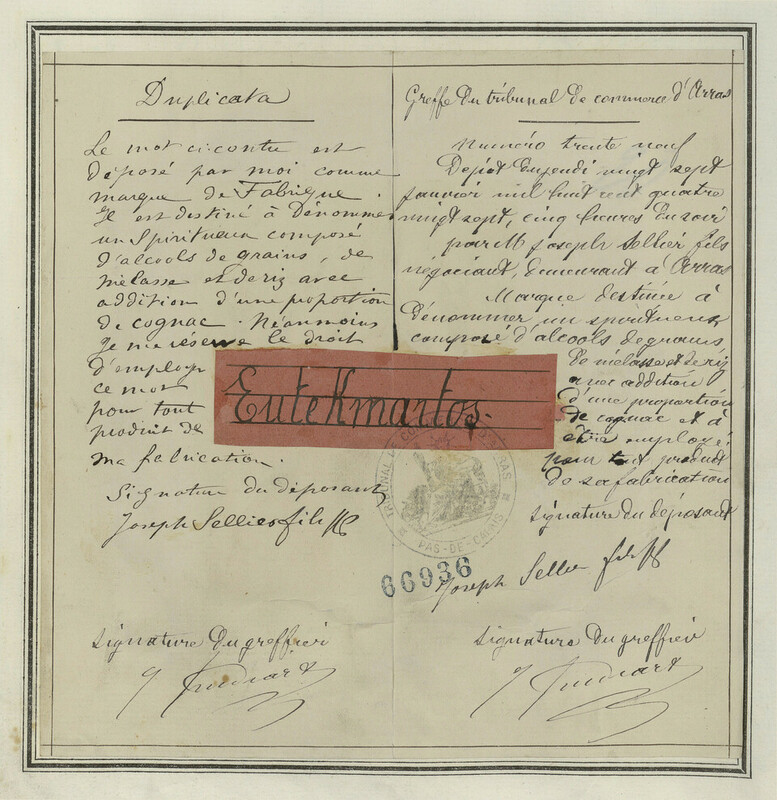 Duplicata
Le mot ci-contre est
déposé par moi comme
marque de Fabrique.
Il est destiné à Dénommer
un Spiritueux composé
d'alcools de grains, de
mélasse et de riz avec
addition d'une proportion
de cognac. Néanmoins
je me réserve le droit
d'employer
ce mot
pour tout
produit de
ma fabrication.
Signature du déposant
Joseph Sellier fils
Signature Du greffier
EuteKmartos.
Greffe Du tribunal De commerce d'Arras
Numéro trente neuf
Dépôt Du jeudi vingt sept
janvier mil huit cent quatre
vingt sept, cinq heures Du soir
par M Joseph Sellier fils
négociant, Demeurant à Arras
Marque destinée à
Dénommer un spiritueux
composé d'alcools de grains,
De mélasse et de riz
avec addition
d'une proportion
de cognac et à
être employé
pour tout produit
De sa fabrication
Signature du déposant
TRIBUNAL DE COMMERCE D'ARRAS
PAS-DE-CALAIS
66936
Joseph Sellier fils
Signature Du greffier